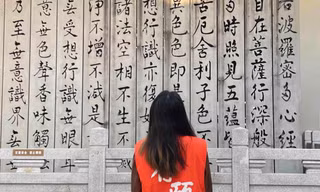 若波羅密多心經
自在菩薩行深般
時照見五蘊皆
苦厄舍利子色
異色色即是
受想行識亦復
諸法空相不生不
淨不增不減是
受想行識無眼
意無色聲香味觸
乃至無意識界無